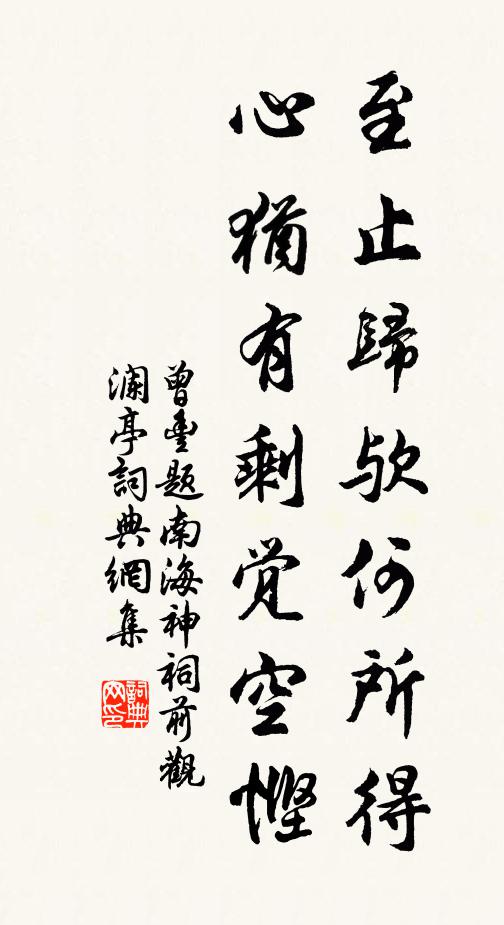 至止歸欤何所得
心猶有剩覚空慳
曾豊題南海神祠前觀
瀾亭詞典網集
詞典网印